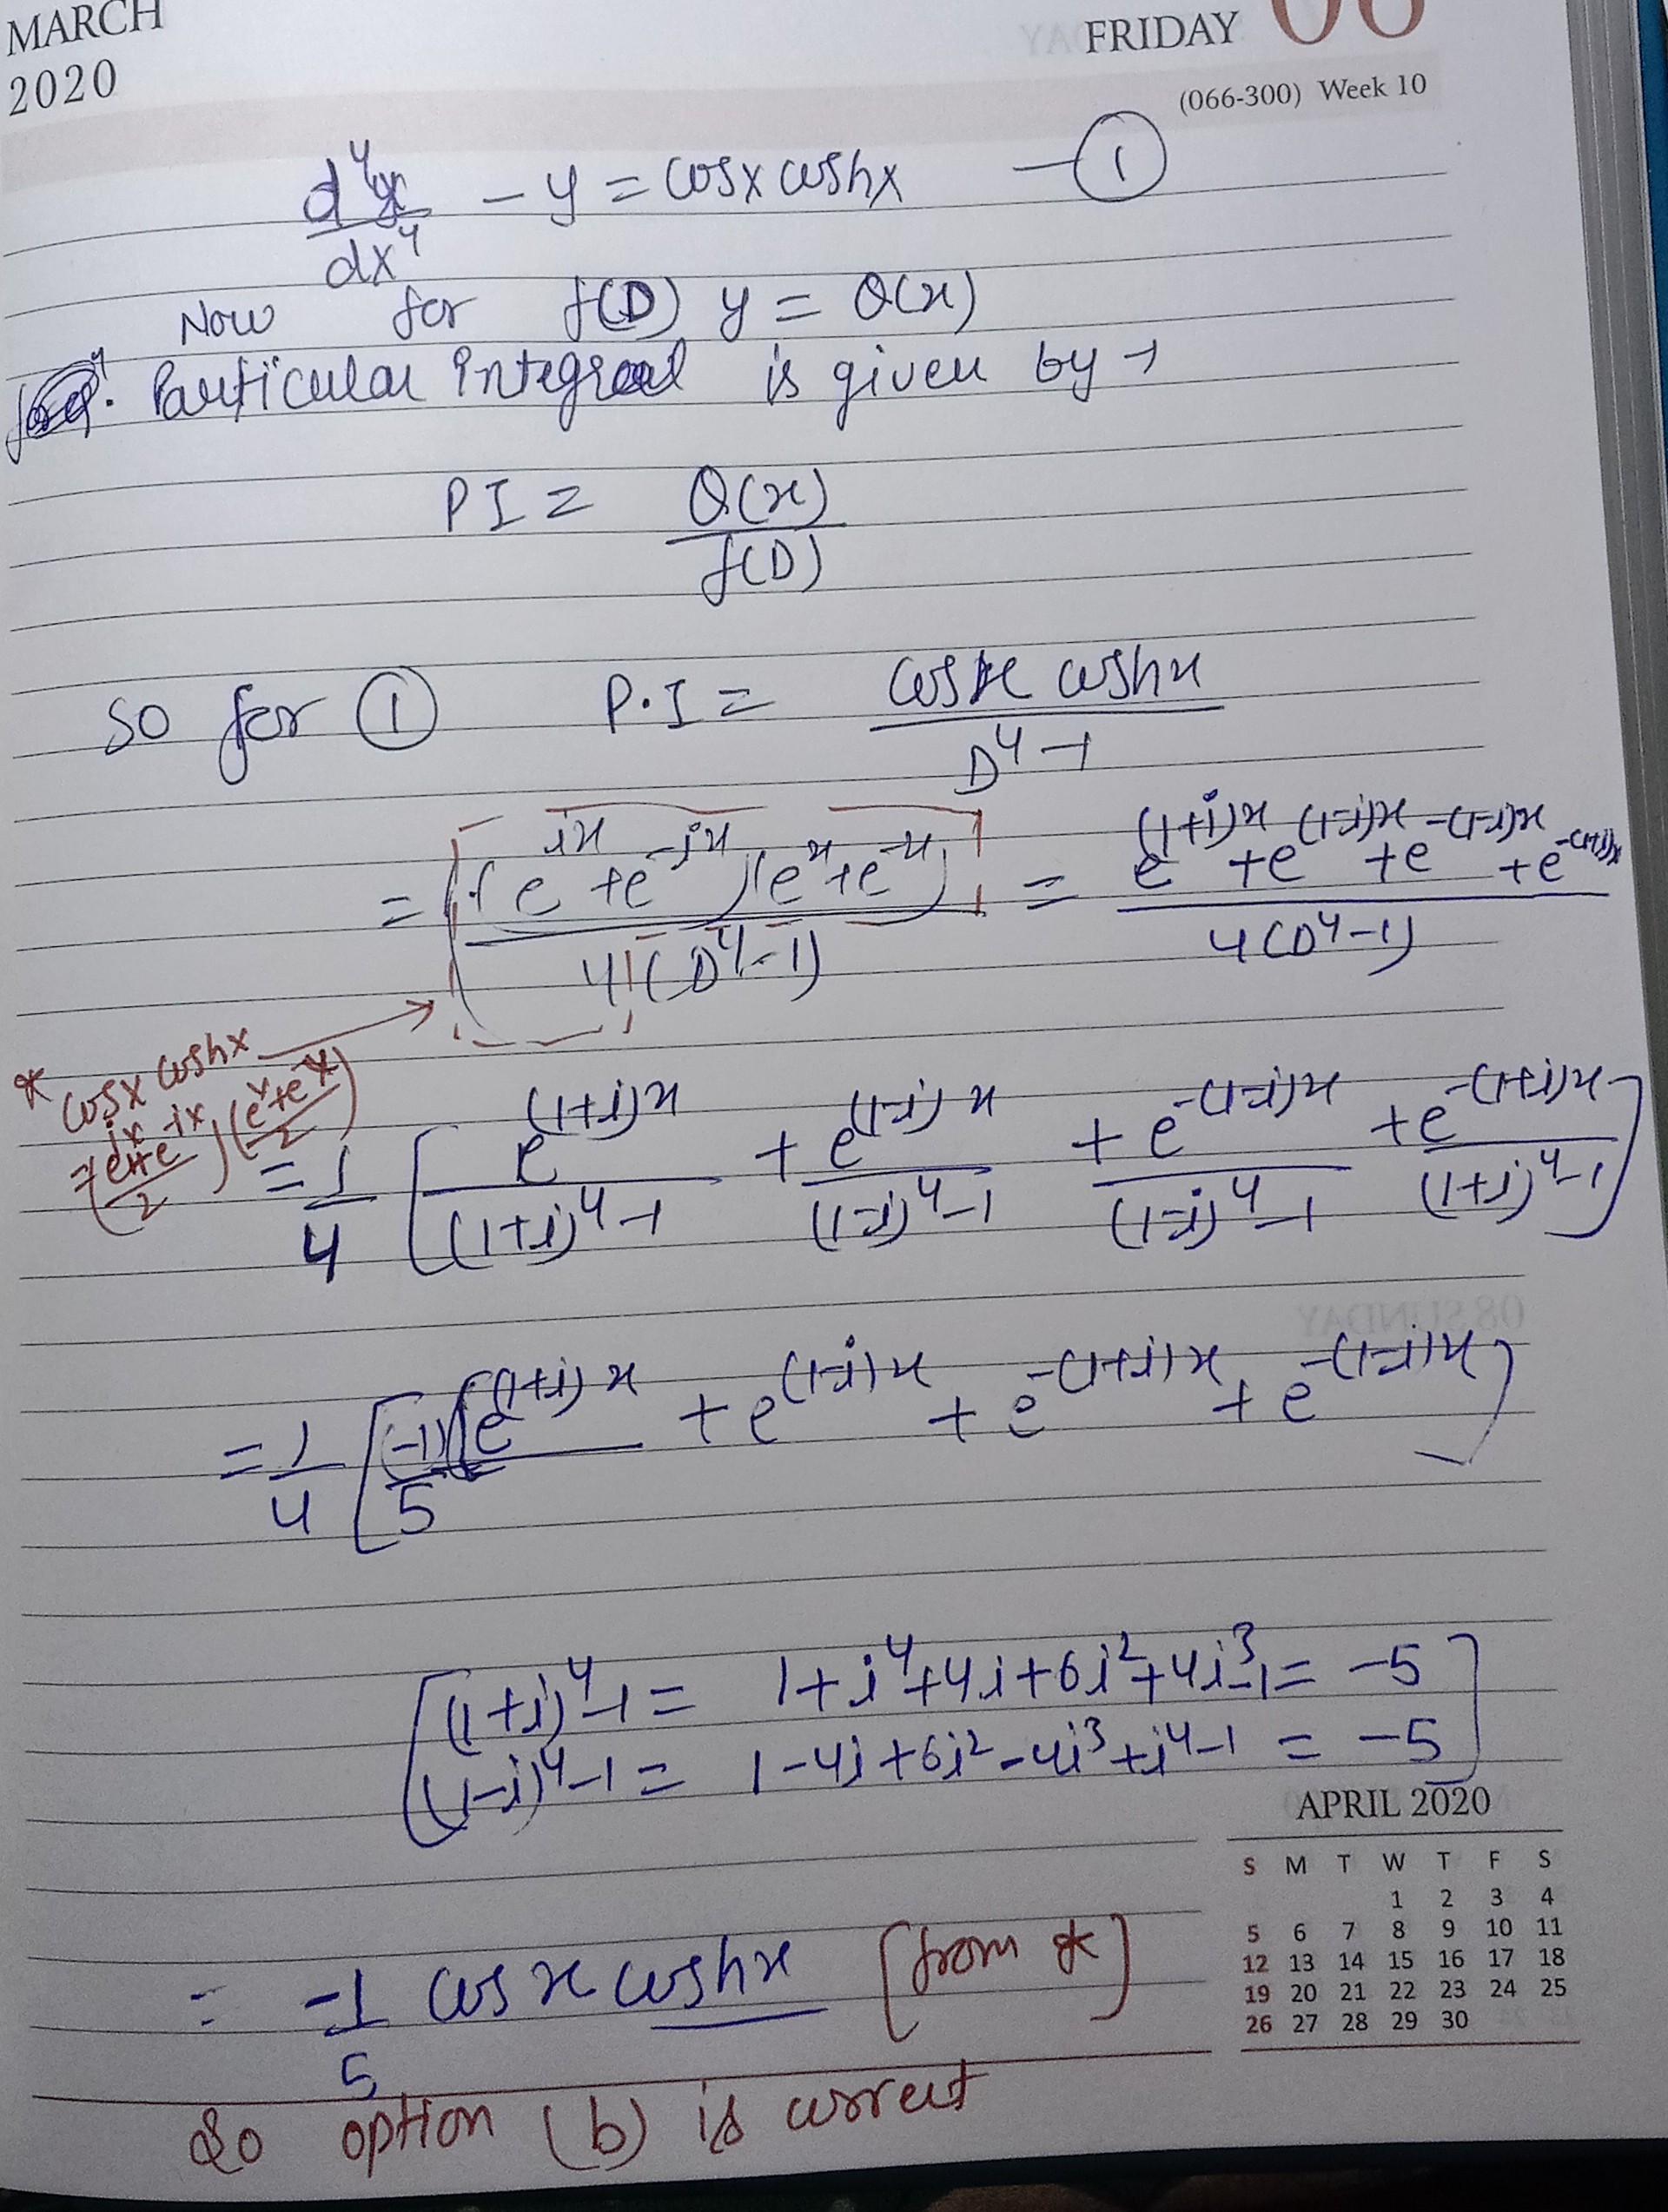 MARCH
2020
FRIDAY 06
(066-300) Week 10
d⁴y/dx⁴ - y = cosx coshx — ①
Now for f(D) y = Q(x)
Particular Integral is given by →
PI = Q(x)/f(D)
So for ① P.I = cosx coshx / D⁴-1
= (e^ix + e^-ix)(e^x + e^-x) / 4(D⁴-1) = e^(1+i)x + e^(1-i)x + e^-(1-i)x + e^-(1+i)x / 4(D⁴-1)
* cosx coshx
= (e^ix + e^-ix / 2)(e^x + e^-x / 2)
= 1/4 [e^(1+i)x / (1+i)⁴-1 + e^(1-i)x / (1-i)⁴-1 + e^-(1-i)x / (1-i)⁴-1 + e^-(1+i)x / (1+i)⁴-1]
= 1/4 [(-1)/5 (e^(1+i)x + e^(1-i)x + e^-(1+i)x + e^-(1-i)x]
[(1+i)⁴-1 = 1+i⁴+4i+6i²+4i³-1 = -5
(1-i)⁴-1 = 1-4i+6i²-4i³+i⁴-1 = -5]
= -1/5 cosx coshx [from *]
So option (b) is correct
APRIL 2020
S M T W T F S
1 2 3 4
5 6 7 8 9 10 11
12 13 14 15 16 17 18
19 20 21 22 23 24 25
26 27 28 29 30